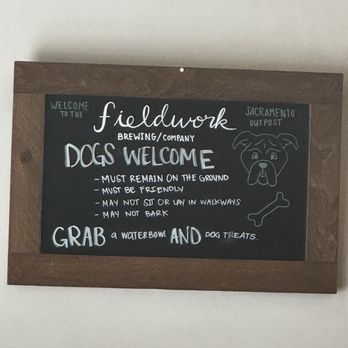 WELCOME TO THE
fieldwork
BREWING/COMPANY
SACRAMENTO OUTPOST
DOGS WELCOME
- MUST REMAIN ON THE GROUND
- MUST BE FRIENDLY
- MAY NOT SIT OR LAY IN WALKWAYS
- MAY NOT BARK
GRAB a WATERBOWL AND DOG TREATS.